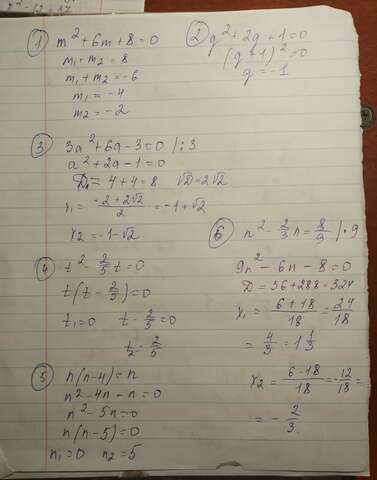 x² - 12 + 17
① m² + 6m + 8 = 0
m₁ = m₂ = 8
m₁ + m₂ = -6
m₁ = -4
m₂ = -2
② g² + 2g + 1 = 0
(g + 1)² = 0
g = -1
③ 3a² + 6a - 3 = 0 | : 3
a² + 2a - 1 = 0
D = 4 + 4 = 8 √D = 2√2
x₁ = (-2 + 2√2)/2 = -1 + √2
x₂ = -1 - √2
④ t² - 2/5 t = 0
t(t - 2/5) = 0
t₁ = 0 t - 2/5 = 0
t₂ = 2/5
⑤ n(n - 4) = n
n² - 4n - n = 0
n² - 5n = 0
n(n - 5) = 0
n₁ = 0 n₂ = 5
⑥ n² - 2/3 n = 8/9 | · 9
9n² - 6n - 8 = 0
D = 36 + 288 = 324
x₁ = (6 + 18)/18 = 24/18
= 4/3 = 1 1/3
x₂ = (6 - 18)/18 = -12/18 =
= - 2/3.